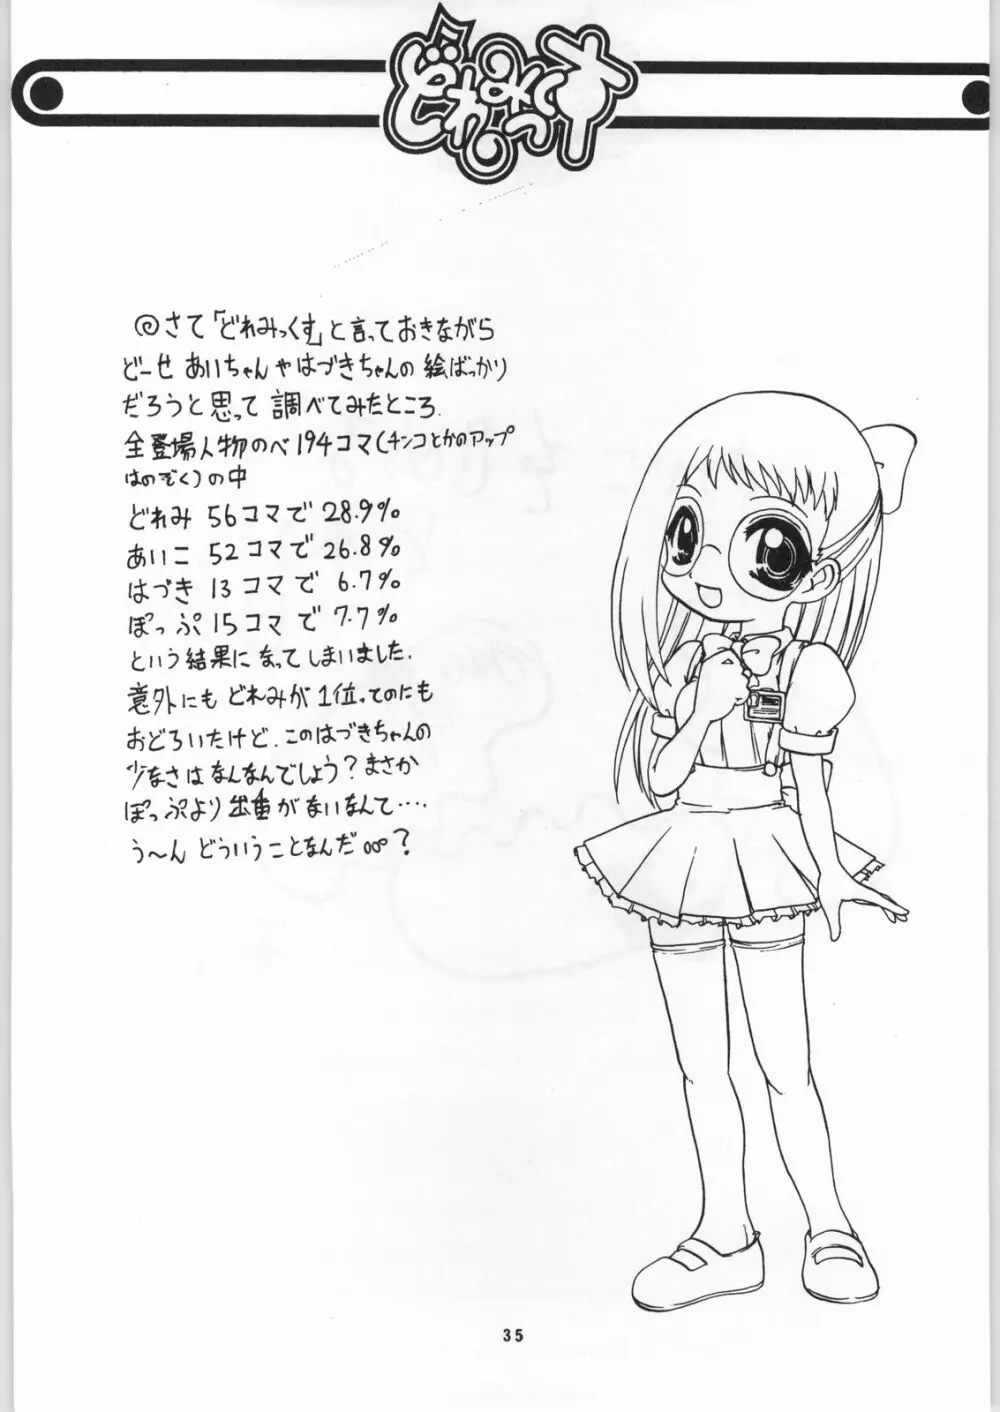 どれみっくす
◎さて「どれみっくす」と言っておきながら
どーせ あいちゃんやはづきちゃんの 絵ばっかり
だろうと思って 調べてみたところ.
全登場人物のべ194コマ(チンコとかのアップ
はのぞく)の中
どれみ 56コマで 28.9%
あいこ 52コマで 26.8%
はづき 13コマで 6.7%
ぽっぷ 15コマで 7.7%
という結果になってしまいました.
意外にも どれみが 1位ってのにも
おどろいたけど. このはづきちゃんの
少なさは なんなんでしょう? まさか
ぽっぷより 出番がないなんて‥‥
う〜ん どういうことなんだ。。。?
35